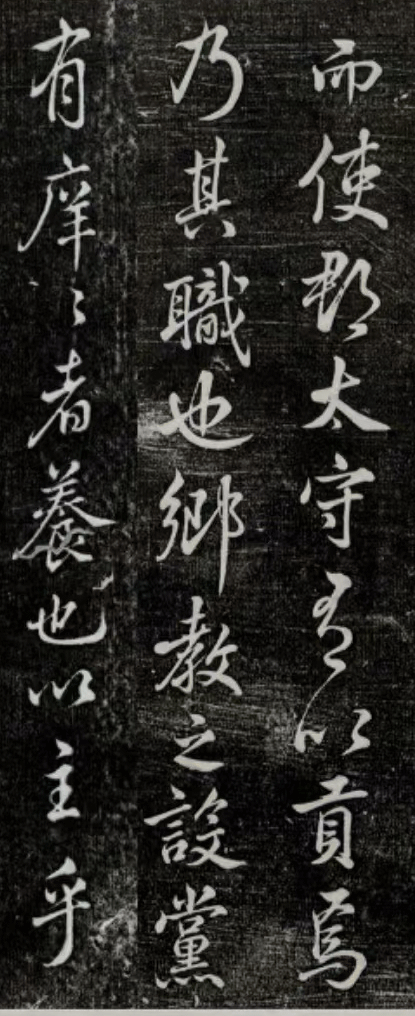 而使郡太守有以貢焉
乃其職也鄉教之設黨
有庠〻者養也以主乎